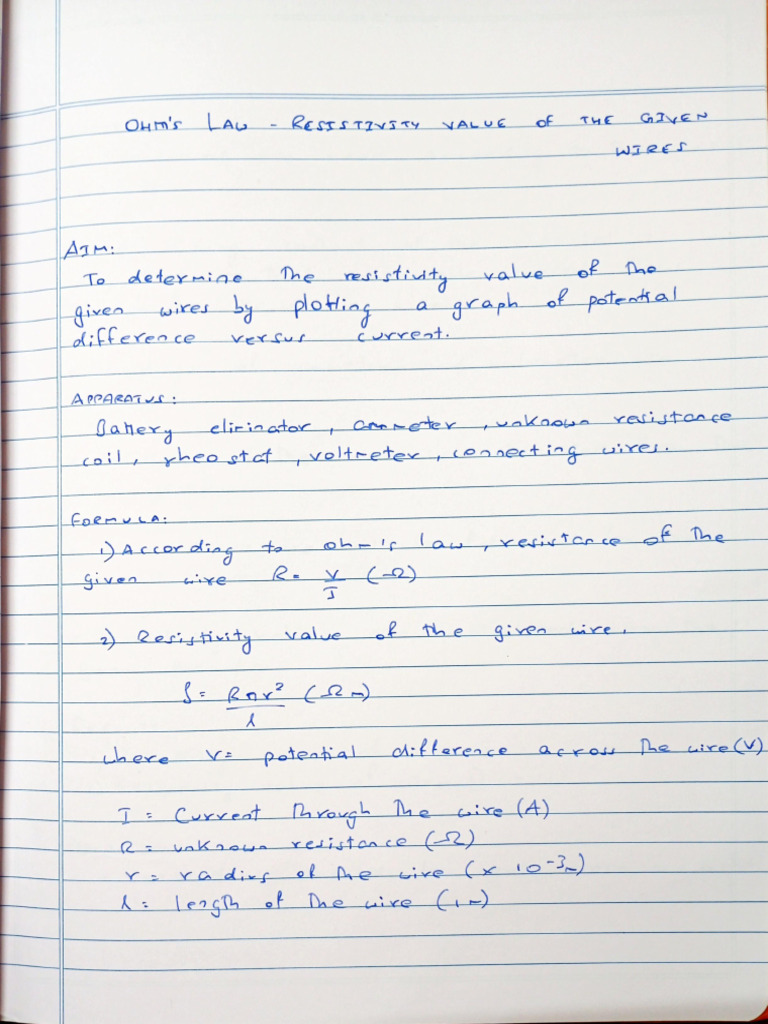 OHM'S LAW - RESISTIVITY VALUE OF THE GIVEN
WIRES
AIM:
To determine the resistivity value of the
given wires by plotting a graph of potential
difference versus current.
APPARATUS:
Battery eliminator, ammeter, unknown resistance
coil, rheostat, voltmeter, connecting wires.
FORMULA:
1) According to ohm's law, resistance of the
given wire R = V/I (Ω)
2) Resistivity value of the given wire.
ρ = Rπr²/l (Ωm)
where V = potential difference across the wire (V)
I = Current through the wire (A)
R = unknown resistance (Ω)
r = radius of the wire (x 10⁻³m)
l = length of the wire (1m)